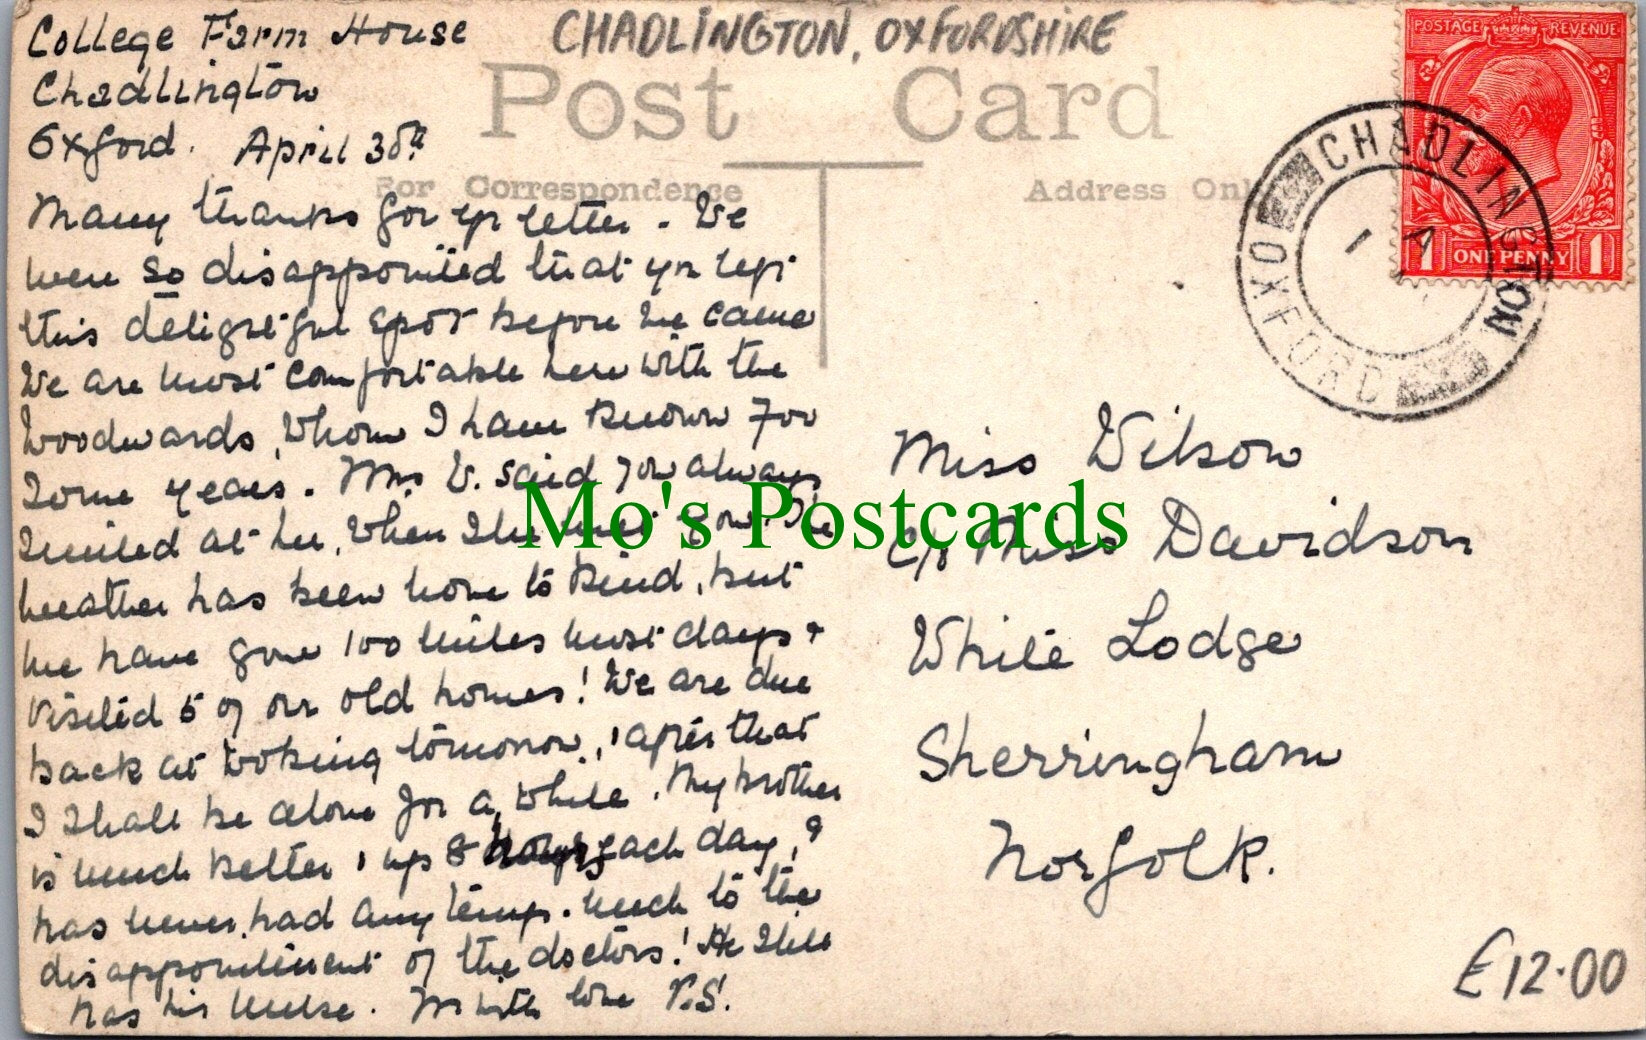 College Farm House
Chadlington
Oxford. April 30th
Many thanks for yr letter. We
were so disappointed that you left
this delightful spot before we came
We are most comfortable here with the
Woodwards, whom I have known for
some years. Mrs W. said you always
smiled at her, when she met you. The
weather has been none to kind, but
we have gone 100 miles most days &
visited 5 of our old homes! We are due
back at Woking tomorrow, & after that
I shall be alone for a while. My brother
is much better, up 8 hours each day, &
has never had any temp. much to the
disappointment of the doctors! He still
has his nurse. with love
CHADLINGTON, OXFORDSHIRE
Post Card
For Correspondence
Address Only
POSTAGE REVENUE
1 ONE PENNY 1
CHADLINGTON
OXFORD
Mo's Postcards
Miss Wilson
c/o Miss Davidson
White Lodge
Sherringham
Norfolk.
£12.00